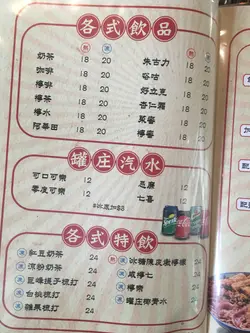 各式飲品
熱 凍 熱 凍
奶茶 18 20 朱古力 18 20
咖啡 18 20 谷咕 18 20
檸啡 18 20 好立克 18 20
檸茶 18 20 杏仁霜 18 20
檸水 18 20 菜蜜 18 20
阿華田 18 20 檸蜜 18 20
罐庄汽水
可口可樂 12 忌廉 12
零度可樂 12 七喜 12
#冰底加$8
各式特飲
凍 紅豆奶茶 24 熱 冰糖陳皮燉檸檬 24
凍 涼粉奶茶 24 凍 咸檸七 24
凍 巨峰提子梳打 24 凍 檸樂 24
凍 白桃梳打 24 凍 罐庄椰青水 24
凍 雜果梳打 24